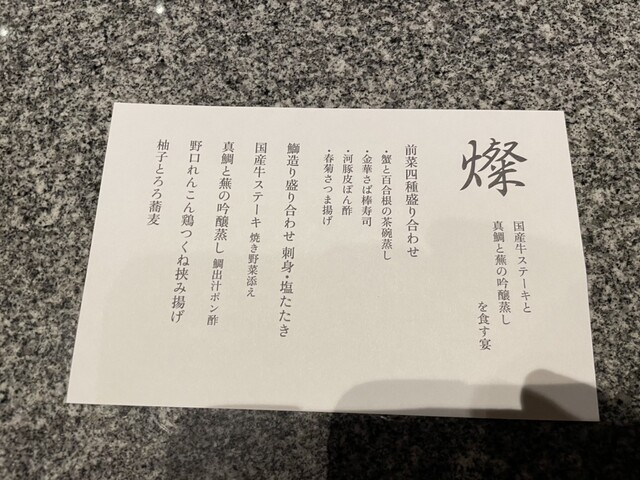 燦
国産牛ステーキと
真鯛と蕪の吟醸蒸し
を食す宴
前菜四種盛り合わせ
・蟹と百合根の茶碗蒸し
・金華さば棒寿司
・河豚皮ぽん酢
・春菊さつま揚げ
鰤造り盛り合わせ 刺身・塩たたき
国産牛ステーキ 焼き野菜添え
真鯛と蕪の吟醸蒸し 鯛出汁ポン酢
野口れんこん鶏つくね挟み揚げ
柚子とろろ蕎麦